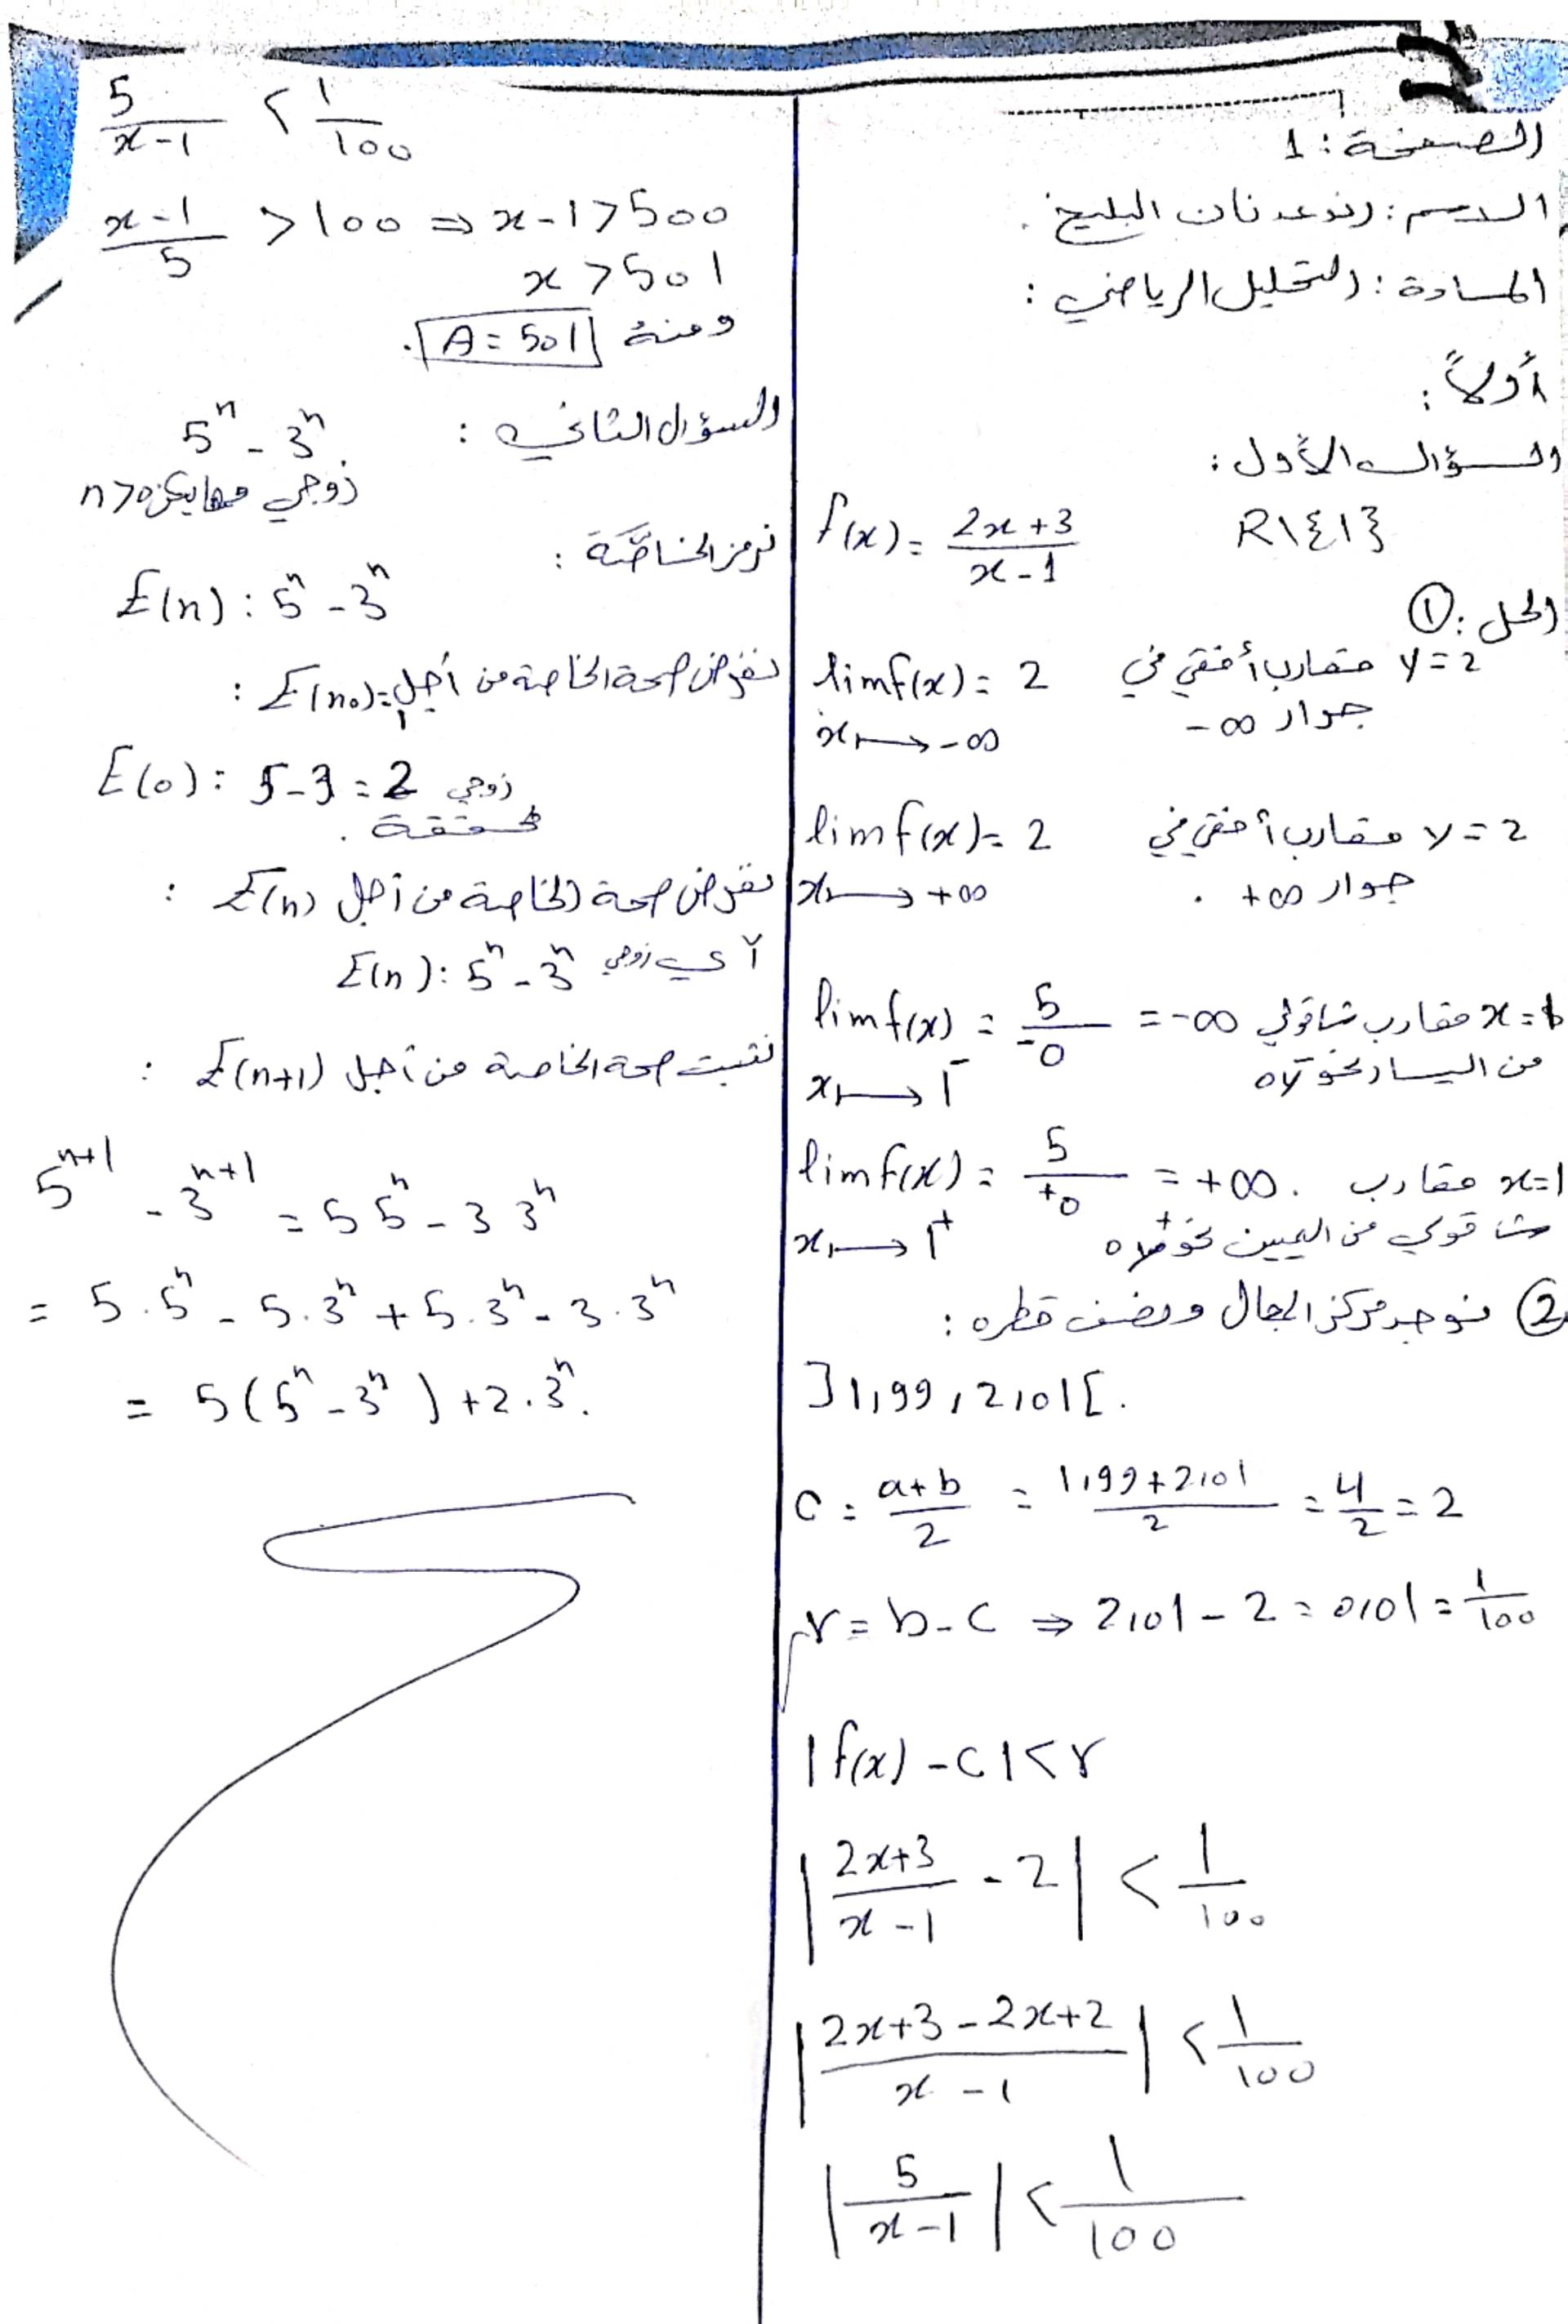 الصفحة: 1
الاسم: رند عدنان البليخ.
المادة: التحليل الرياضي:
أولاً:
السؤال الأول:
f(x) = \frac{2x+3}{x-1} R\{1}
الحل: ①
lim f(x) = 2 y=2 مقارب أفقي في
x → -∞ جوار ∞-
lim f(x) = 2 y=2 مقارب أفقي في
x → +∞ جوار ∞+ .
lim f(x) = \frac{5}{-0} = -∞ x=1 مقارب شاقولي
x → 1⁻ من اليسار نحو
lim f(x) = \frac{5}{+0} = +∞. x=1 مقارب
x → 1⁺ شاقولي من اليمين نحو
② نوجد مركز المجال ونصف قطره:
]1,99 , 2,01[.
c = \frac{a+b}{2} = \frac{1,99+2,01}{2} = \frac{4}{2} = 2
r = b-c ⇒ 2,01 - 2 = 0,01 = \frac{1}{100}
|f(x) - c| < r
|\frac{2x+3}{x-1} - 2| < \frac{1}{100}
|\frac{2x+3-2x+2}{x-1}| < \frac{1}{100}
|\frac{5}{x-1}| < \frac{1}{100}
\frac{5}{x-1} < \frac{1}{100}
\frac{x-1}{5} > 100 ⇒ x-1 > 500
x > 501
ومنه A = 501.
السؤال الثاني: 5ⁿ - 3ⁿ
زوجي مهما يكن n>0
نرمز الخاصّة:
E(n) : 5ⁿ - 3ⁿ
نفرض صحة الخاصة من أجل E(n₀)=1:
E(0) : 5-3 = 2 زوجي
محققة.
نفرض صحة الخاصة من أجل E(n):
أي زوجي E(n) : 5ⁿ - 3ⁿ
نثبت صحة الخاصة من أجل E(n+1):
5ⁿ⁺¹ - 3ⁿ⁺¹ = 5 5ⁿ - 3 3ⁿ
= 5.5ⁿ - 5.3ⁿ + 5.3ⁿ - 3.3ⁿ
= 5(5ⁿ - 3ⁿ) + 2.3ⁿ.